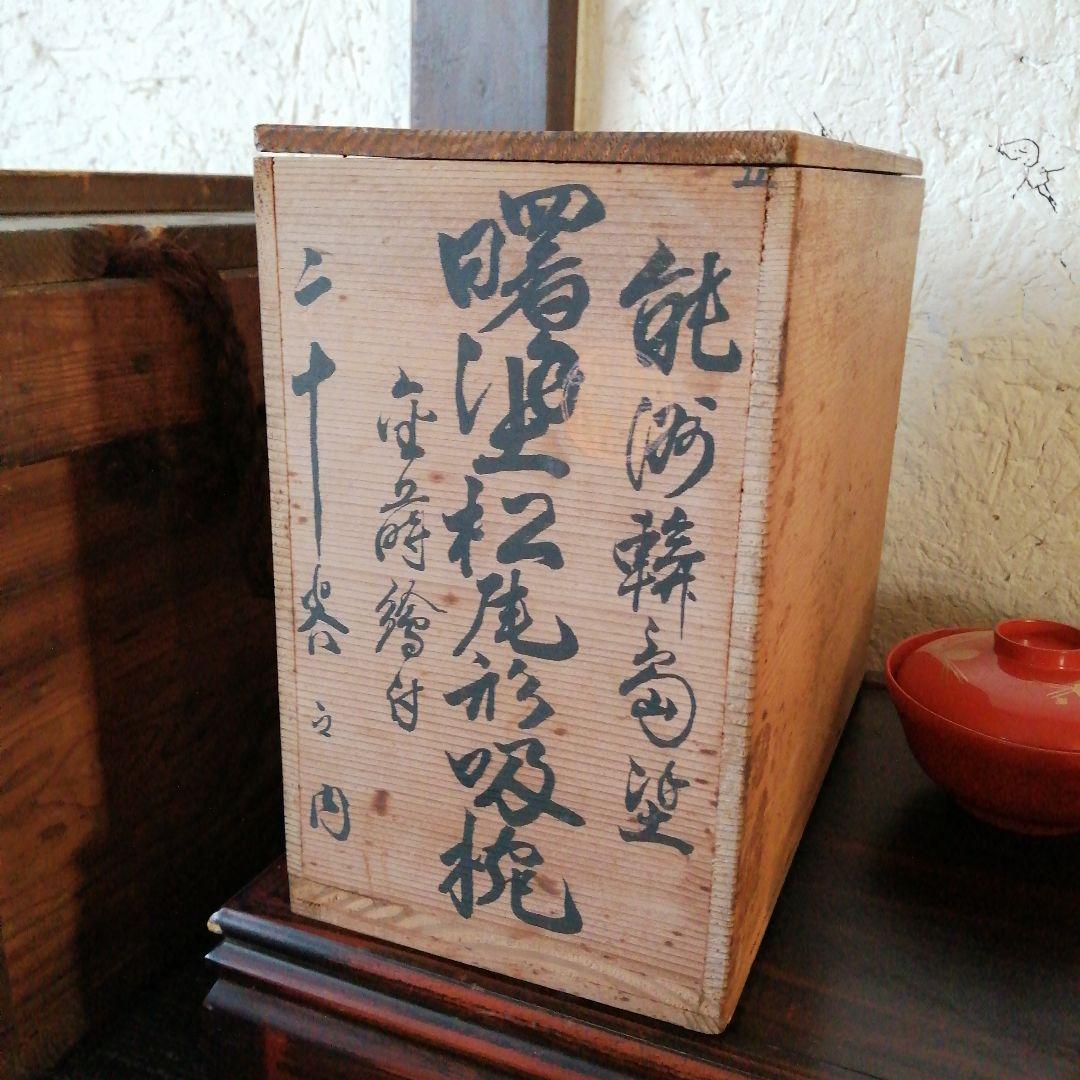 能州輪島塗
曙塗松尾形吸椀
金蒔繪付
二十人前之内